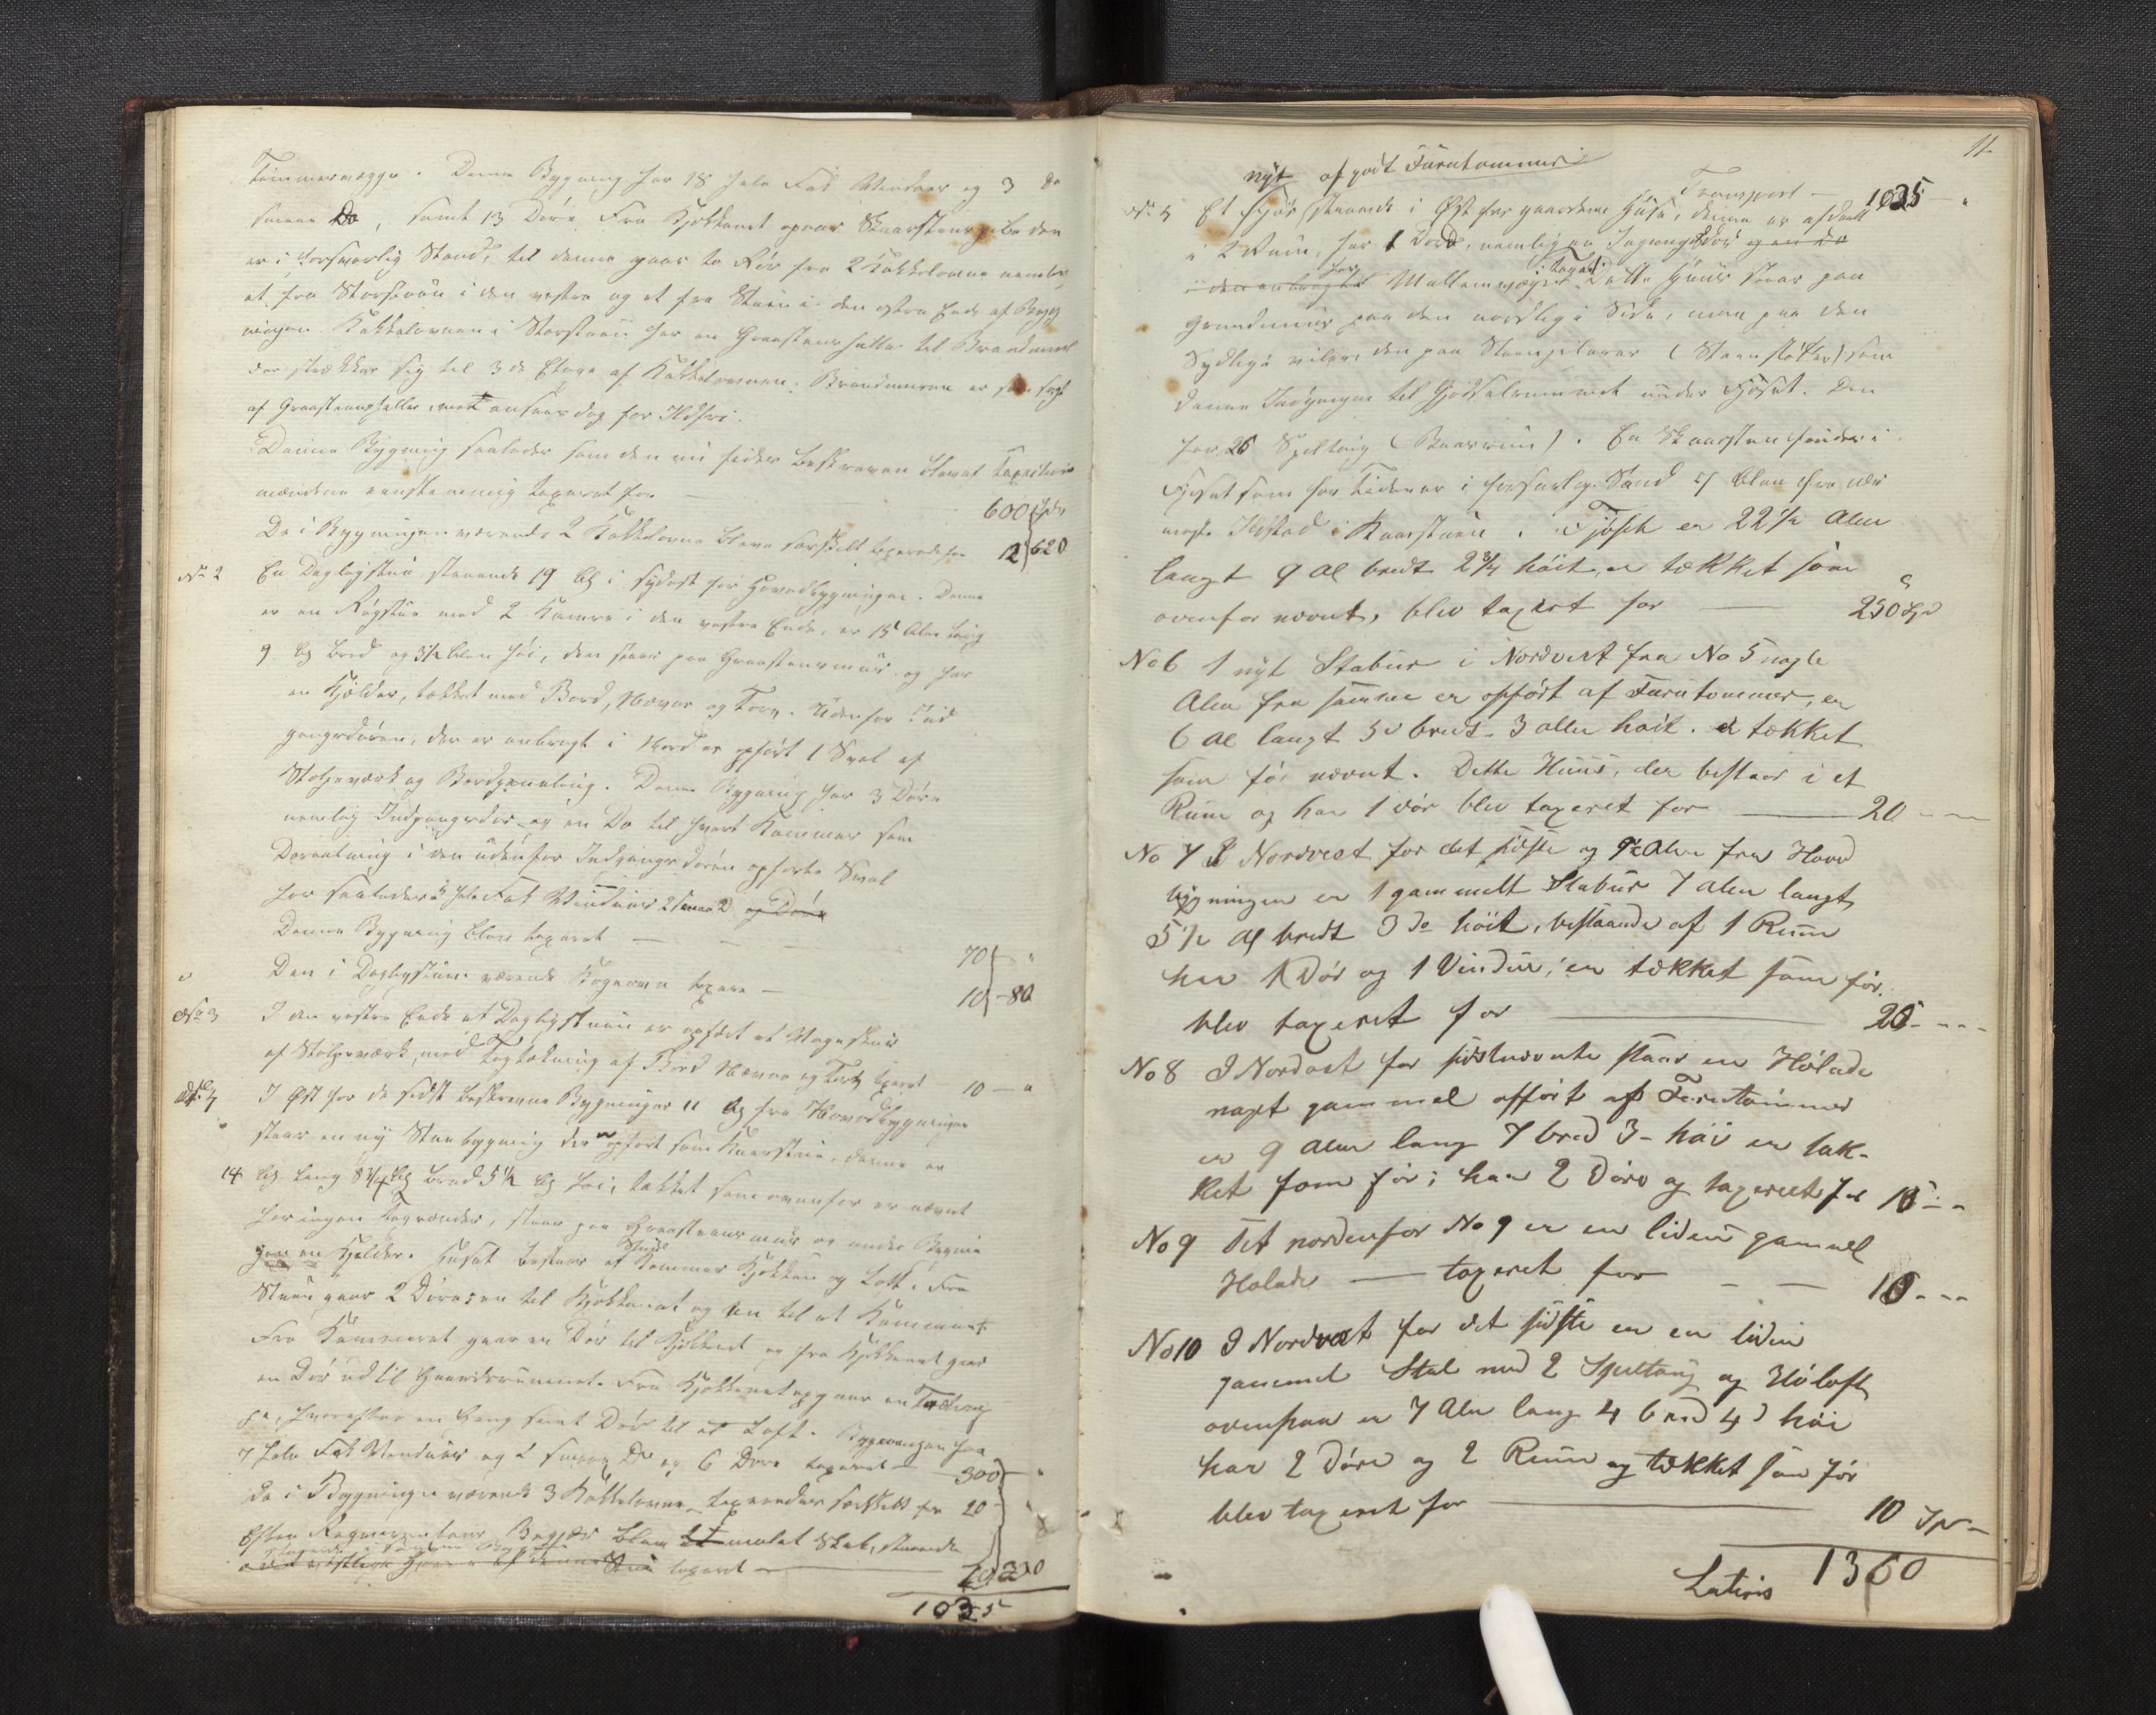 Tømmervægge. Denne Bygning har 18 hele Fak Vinduer og 3 do
smaae Do, samt 13 Døre. Fra Kjøkkenet opgaar Skaarstenspibe den
er i forsvarlig Stand, til denne gaar to Rør fra 2 Kakkelovne nemlig
et fra Storstuen i den vestre og et fra Stuen i den østre Ende af Byg
ningen. Kakkelovnen i Storstuen har en Graastenshelle til Brandmuur
der strækker sig til 3de Etage af Kakkelovnen. Brandmuren er
af Graasteenheller, men ansees dog for Ildfri.
Denne Bygning saaledes som den nu sidst beskreven blevet Taxations
mændene eenstemmig taxeret for — 600
De i Bygningen værende 2 Kakkelovne bleve særskilt taxerede for 12 620
No 2 En Daglystue staaende 19 Al i sydost for Hovedbygningen. Denne
er en Røgstue med 2 Kamre i den vestre Ende, er 15 Alen lang
9 Al bred og 3½ Alen høi, den staar paa Graasteensmuur og har
en Kjelder, tækket med Bord, Næver og Torv. Udenfor Ind
gangsdøren, der er anbragt i Nord er opført 1 Sval af
Stolpeværk og Bordpaneling. Denne Bygning har 3 Døre
nemlig Indgangsdør og en Do til hvert Kammer som
Døraabning i den udenfor Indgangsdøren opførte Sval
har saaledes hele Fak Vinduer 2 smaae D og Døre
Denne Bygning blev taxeret — — — 70
Den i Daglystuen værende Kogeovn taxeret — 10 - 80
No 3 I den vestre Ende at Daglystuen er opført et Vognskuur
af Stolpeværk, med Tagtækning af Bord Næver og Torv taxeret 10 — "
No 4 I Øst for de sidst beskrevne Bygninger 11 Al fra Hovedbygningen
staar en ny Stuebygning der er opført som Kaarstue, denne er
14 Al lang 8¾ Al bred 5½ Al høi, tækket som ovenfor er nævnt
har ingen Tagrender, staar paa Graasteensmuur og under Bygnin
gen en Kjelder. Huset bestaar af Stue Kammer Kjøkken og Loft. Fra
Stuen gaar 2 Døre en til Kjøkkenet og en til et Kammer.
Fra Kammeret gaar en Dør til Kjøkkenet og fra Kjøkkenet gaar
en Dør ud til Gaardsrummet. Fra Kjøkkenet opgaar en Trap
pe, hvorefter en Gang samt Dør til et Loft. Bygningen har
7 hele Fak Vinduer og 2 smaae Do og 6 Døre taxeret — 300
De i Bygningen værende 3 Kakkelovne taxeredes særskilt for 20
Efter Reqvirentens Begjær blev et malet Skab, staaende
i det vestlige Hjørne af denne Stue taxeret —
1035
11
nyt af godt Furutømmer
Transport — 1035 — "
No 5 Et Fjøs staaende i Øst for gaardens Huse, denne er afdeelt
i 2 Rum, har 1 Dør, nemlig en Indgangsdør og en do
i den anbragte Mellemvæg i Taget. Dette Huus staar paa
Grundmuur paa den nordlige Side, men paa den
Sydlige viler den paa Steenpilarer (Steenstøtter) som
danne Indgangen til Gjødselrummet under Fjøset. Den
har 26 Spiltoug (Baasrum). En Skaarsten findes i
Fjøset som for Tiden er i forsvarlig Stand 51 Alen fra nær
meste Ildsted i Kaarstuen. Fjøset er 22½ Alen
langt 9 Al bredt 2¾ høit, er tækket som
ovenfor nævnt, blev taxert for — 250 Spd
No 6 1 nyt Stabur i Nordvest fra No 5 nogle
Alen fra samme er opført af Furutømmer, er
6 Al langt 5 d bredt 3 allen høit. er tækket
som før nævnt. Dette Huus, der bestaar i et
Rum og har 1 dør blev taxeret for — 20 — —
No 7 I Nordvest for det sidste og 92 Alen fra Hoved
bygningen er 1 gammelt Stabur 7 alen langt
5½ Al bredt 3 do høit, bestaaende af 1 Rum
har 1 Dør og 1 Vindue, er tækket som før.
blev taxeret for — 20 - - -
No 8 I Nordost for sidstnævnte staar en Hølade
noget gammel opført af Furutømmer
er 9 Alen lang 7 bred 3 - høi er tæk-
ket som før; har 2 døre og taxeret for 15 - -
No 9 Tet nordenfor No 9 er en liden gammel
Hølade — taxeret for — — 10 - - -
No 10 I Nordvæst for det sidste er en liden
gammel Stal med 2 Spiltoug og Høloft
ovenpaa er 7 Alen lang 4 bred 4 d høi
har 2 døre og 2 Rum og tækket som før
blev taxeret for — 10 Sp —
Lateris 1360